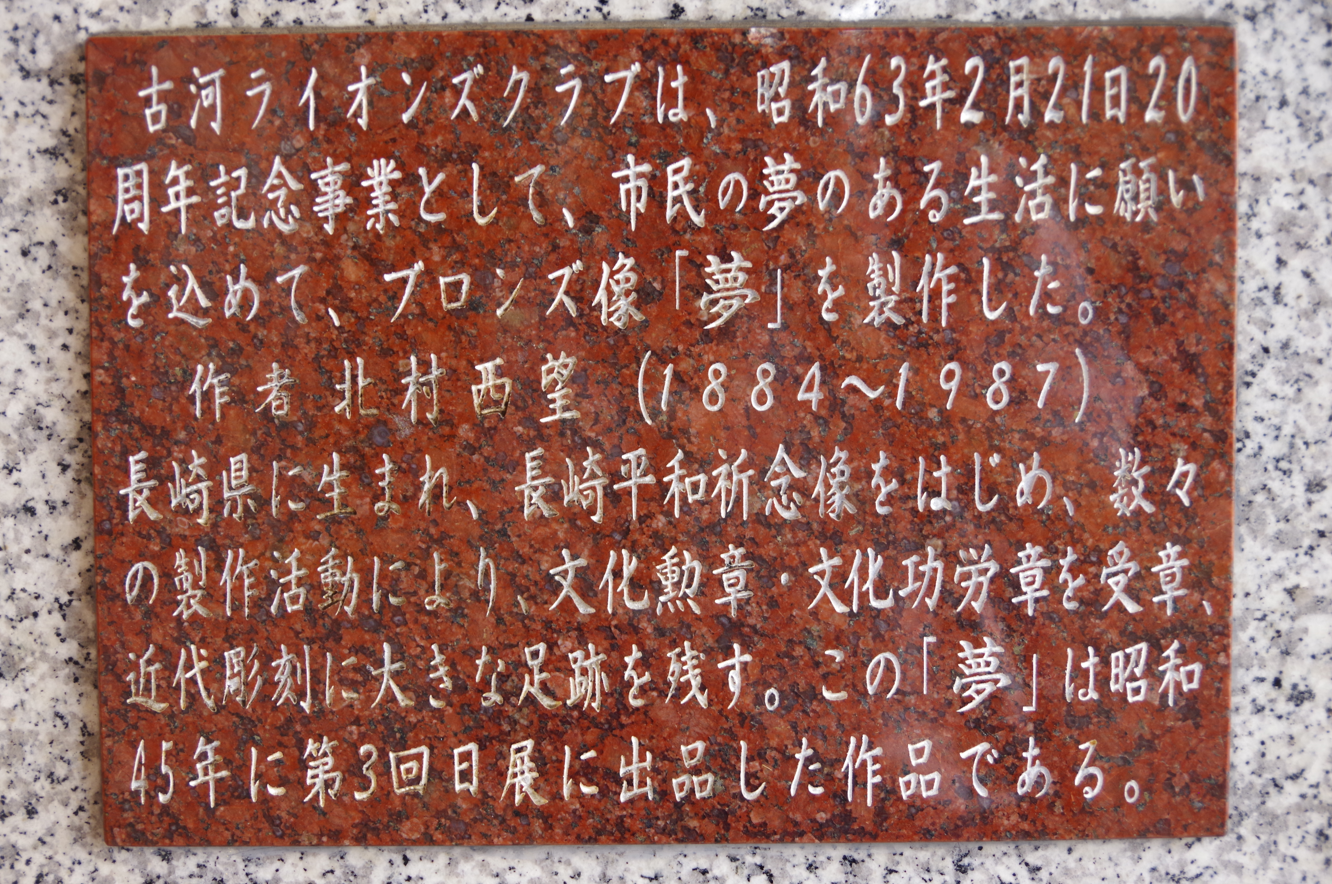 古河ライオンズクラブは、昭和63年2月21日20
周年記念事業として、市民の夢のある生活に願い
を込めて、ブロンズ像「夢」を製作した。
作者北村西望(1884〜1987)
長崎県に生まれ、長崎平和祈念像をはじめ、数々
の製作活動により、文化勲章・文化功労章を受章、
近代彫刻に大きな足跡を残す。この「夢」は昭和
45年に第3回日展に出品した作品である。